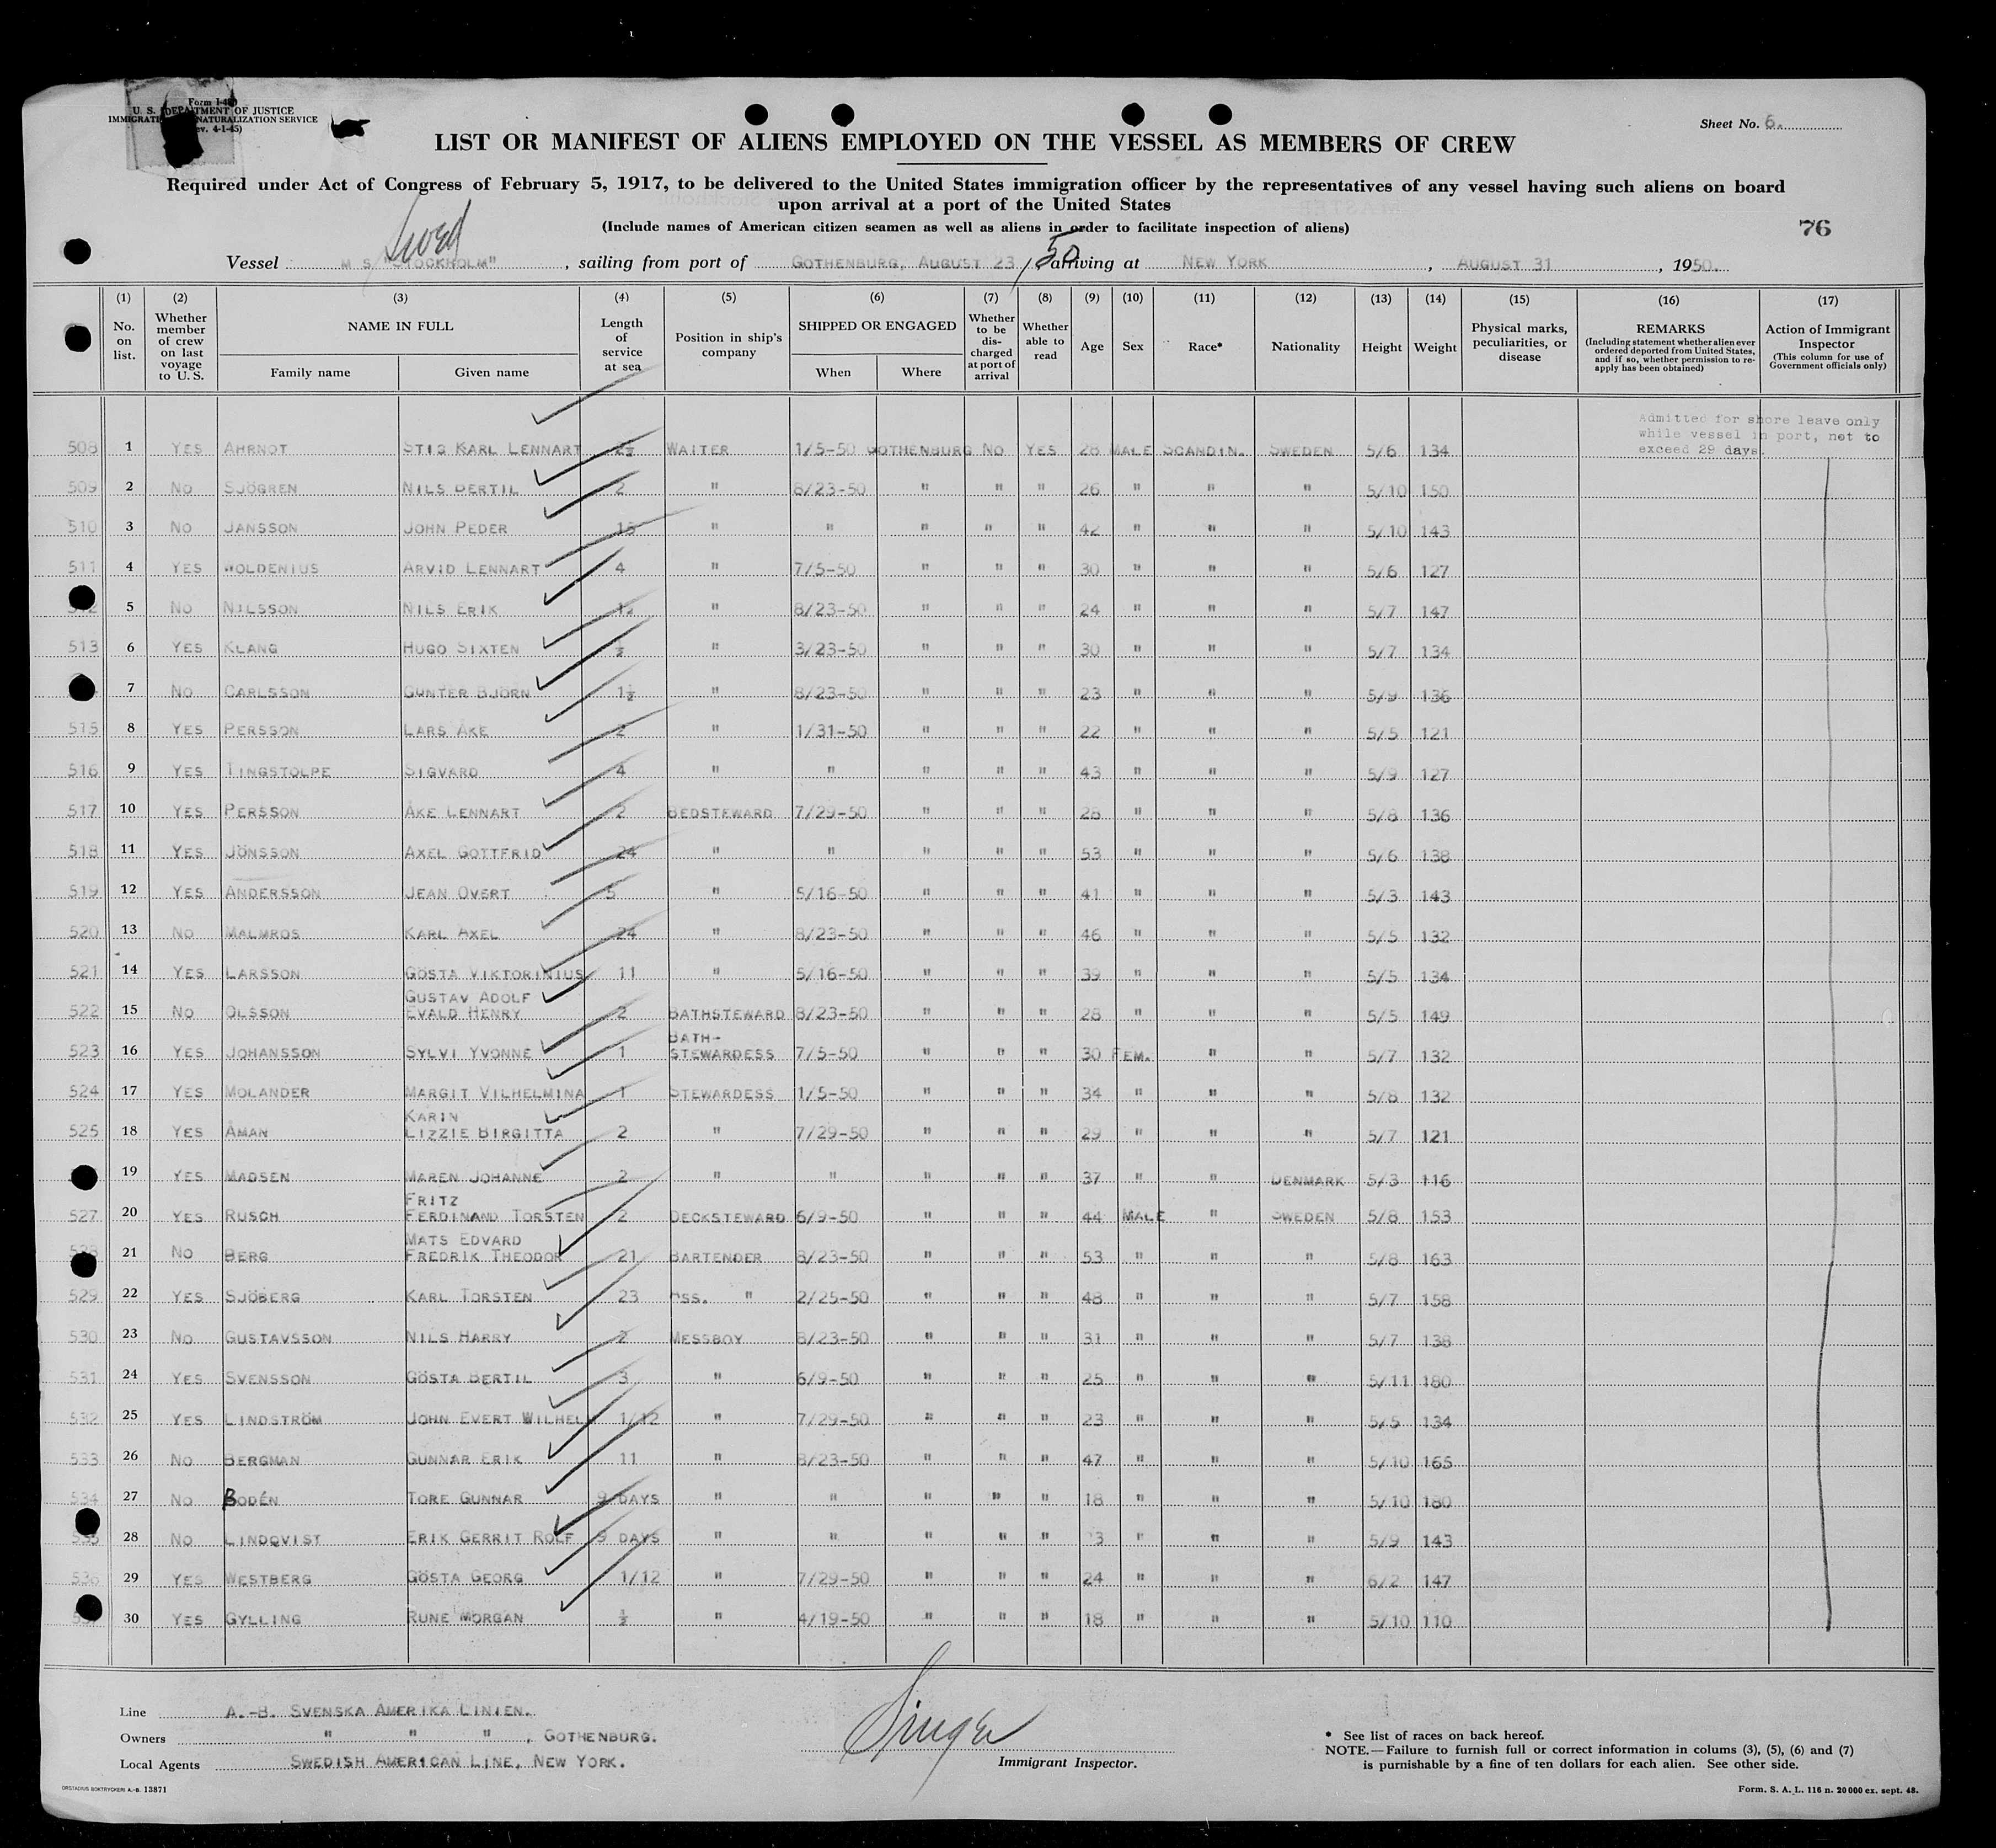 Form I-480
U. S. DEPARTMENT OF JUSTICE
IMMIGRATION NATURALIZATION SERVICE
(Rev. 4-1-45)
Sheet No. 6.
LIST OR MANIFEST OF ALIENS EMPLOYED ON THE VESSEL AS MEMBERS OF CREW
Required under Act of Congress of February 5, 1917, to be delivered to the United States immigration officer by the representatives of any vessel having such aliens on board
upon arrival at a port of the United States
(Include names of American citizen seamen as well as aliens in order to facilitate inspection of aliens)
76
Swed
Vessel M S "STOCKHOLM", sailing from port of GOTHENBURG, AUGUST 23, 50 arriving at NEW YORK, AUGUST 31, 1950.
(1) (2) (3) (4) (5) (6) (7) (8) (9) (10) (11) (12) (13) (14) (15) (16) (17)
No. on list. Whether member of crew on last voyage to U. S. NAME IN FULL Family name Given name Length of service at sea Position in ship's company SHIPPED OR ENGAGED When Where Whether to be discharged at port of arrival Whether able to read Age Sex Race* Nationality Height Weight Physical marks, peculiarities, or disease REMARKS (Including statement whether alien ever ordered deported from United States, and if so, whether permission to re-apply has been obtained) Action of Immigrant Inspector (This column for use of Government officials only)
Admitted for shore leave only
while vessel in port, not to
exceed 29 days.
508 1 YES AHRNOT STIG KARL LENNART 2½ WAITER 1/5-50 GOTHENBURG NO YES 28 MALE SCANDIN. SWEDEN 5/6 134
509 2 NO SJÖGREN NILS BERTIL 2 " 8/23-50 " " " 26 " " " 5/10 150
510 3 NO JANSSON JOHN PEDER 15 " " " " " 42 " " " 5/10 143
511 4 YES WOLDENIUS ARVID LENNART 4 " 7/5-50 " " " 30 " " " 5/6 127
5 NO NILSSON NILS ERIK 1½ " 8/23-50 " " " 24 " " " 5/7 147
513 6 YES KLANG HUGO SIXTEN ½ " 3/23-50 " " " 30 " " " 5/7 134
7 NO CARLSSON GUNTER BJÖRN 1½ " 8/23-50 " " " 23 " " " 5/9 136
515 8 YES PERSSON LARS ÅKE 2 " 1/31-50 " " " 22 " " " 5/5 121
516 9 YES TINGSTOLPE SIGVARD 4 " " " " " 43 " " " 5/9 127
517 10 YES PERSSON ÅKE LENNART 2 BEDSTEWARD 7/29-50 " " " 28 " " " 5/8 136
518 11 YES JÖNSSON AXEL GOTTFRID 24 " " " " " 53 " " " 5/6 138
519 12 YES ANDERSSON JEAN OVERT 5 " 5/16-50 " " " 41 " " " 5/3 143
520 13 NO MALMROS KARL AXEL 24 " 8/23-50 " " " 46 " " " 5/5 132
521 14 YES LARSSON GÖSTA VIKTORINIUS 11 " 5/16-50 " " " 39 " " " 5/5 134
GUSTAV ADOLF
522 15 NO OLSSON EVALD HENRY 2 BATHSTEWARD 8/23-50 " " " 28 " " " 5/5 149
BATH-
523 16 YES JOHANSSON SYLVI YVONNE 1 STEWARDESS 7/5-50 " " " 30 FEM. " " 5/7 132
524 17 YES MOLANDER MARGIT VILHELMINA 1 STEWARDESS 1/5-50 " " " 34 " " " 5/8 132
KARIN
525 18 YES ÅMAN LIZZIE BIRGITTA 2 " 7/29-50 " " " 29 " " " 5/7 121
19 YES MADSEN MAREN JOHANNE 2 " " " " " 37 " " DENMARK 5/3 116
FRITZ
527 20 YES RUSCH FERDINAND TORSTEN 2 DECKSTEWARD 6/9-50 " " " 44 MALE " SWEDEN 5/8 153
MATS EDVARD
528 21 NO BERG FREDRIK THEODOR 21 BARTENDER 8/23-50 " " " 53 " " " 5/8 163
529 22 YES SJÖBERG KARL TORSTEN 23 ASS. " 2/25-50 " " " 48 " " " 5/7 158
530 23 NO GUSTAVSSON NILS HARRY 2 MESSBOY 8/23-50 " " " 31 " " " 5/7 138
531 24 YES SVENSSON GÖSTA BERTIL 3 " 6/9-50 " " " 25 " " " 5/11 180
532 25 YES LINDSTRÖM JOHN EVERT WILHEL 1/12 " 7/29-50 " " " 23 " " " 5/5 134
533 26 NO BERGMAN GUNNAR ERIK 11 " 8/23-50 " " " 47 " " " 5/10 165
534 27 NO BODÉN TORE GUNNAR 9 DAYS " " " " " 18 " " " 5/10 180
535 28 NO LINDQVIST ERIK GERRIT ROLF 9 DAYS " " " " " 3 " " " 5/9 143
536 29 YES WESTBERG GÖSTA GEORG 1/12 " 7/29-50 " " " 24 " " " 6/2 147
30 YES GYLLING RUNE MORGAN ½ " 4/19-50 " " " 18 " " " 5/10 110
Line A.-B. SVENSKA AMERIKA LINIEN.
Owners " " " , GOTHENBURG.
Local Agents SWEDISH AMERICAN LINE, NEW YORK.
Singer
Immigrant Inspector.
* See list of races on back hereof.
NOTE.—Failure to furnish full or correct information in colums (3), (5), (6) and (7)
is punishable by a fine of ten dollars for each alien. See other side.
ORSTADIUS BOKTRYCKERI A.-B. 13871
Form. S. A. L. 116 n. 20 000 ex. sept. 48.